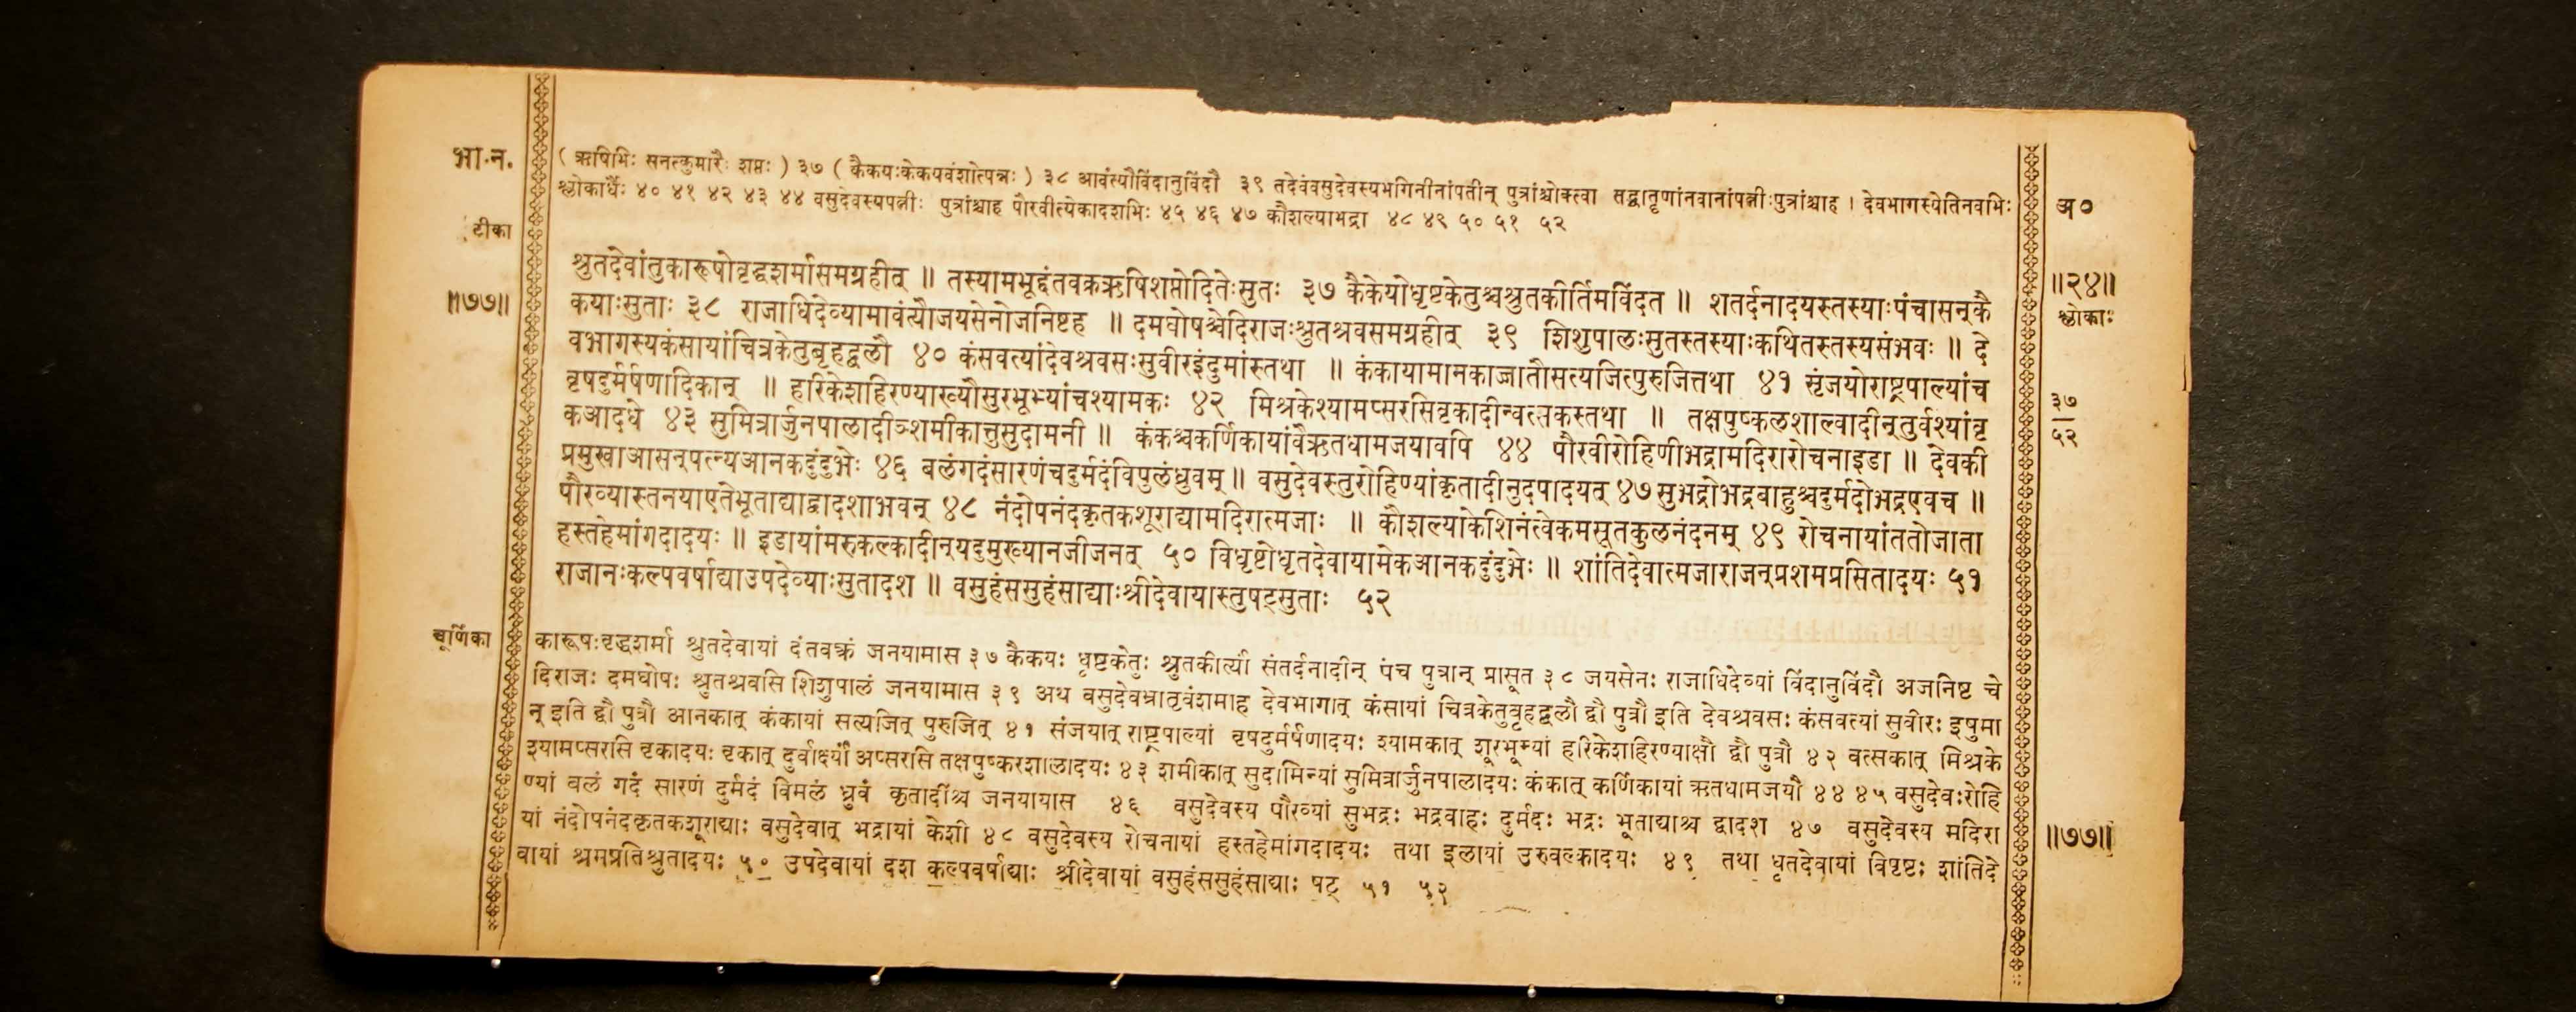 भा.न.
( ऋषिभिः सनत्कुमारैः शप्तः ) ३७ ( कैकयःकेकयवंशोत्पन्नः ) ३८ आवंत्यौविंदानुविंदौ ३९ तदेवंवसुदेवस्यभगिनीनांपतीन् पुत्रांश्चोक्त्वा तद्भ्रातॄणांनवानांपत्नीःपुत्रांश्चाह । देवभागस्येतिनवभिः
श्लोकार्धैः ४० ४१ ४२ ४३ ४४ वसुदेवस्यपत्नीः पुत्रांश्चाह पौरवीत्येकादशभिः ४५ ४६ ४७ कौशल्याभद्रा ४८ ४९ ५० ५१ ५२
अ०
टीका
॥७७॥
॥२४॥
श्लोकाः
३७
५२
श्रुतदेवांतुकारूषोवृद्धशर्मासमग्रहीत् ॥ तस्यामभूद्दंतवक्रऋषिशप्तोदितेःसुतः ३७ कैकेयोधृष्टकेतुश्चश्रुतकीर्तिमविंदत ॥ शतर्दनादयस्तस्याःपंचासन्कै
कयाःसुताः ३८ राजाधिदेव्यामावंत्यौजयसेनोजनिष्टह ॥ दमघोषश्चेदिराजःश्रुतश्रवसमग्रहीत् ३९ शिशुपालःसुतस्तस्याःकथितस्तस्यसंभवः ॥ दे
वभागस्यकंसायांचित्रकेतुबृहद्बलौ ४० कंसवत्यांदेवश्रवसःसुवीरइंदुमांस्तथा ॥ कंकायामामकाज्जातौसत्यजित्पुरुजित्तथा ४१ सृंजयोराष्ट्रपाल्यांच
वृषदुर्मर्षणादिकान् ॥ हरिकेशहिरण्याख्यौसुरभूभ्यांचश्यामकः ४२ मिश्रकेश्यामप्सरसिवृकादीन्वत्सकस्तथा ॥ तक्षपुष्कलशाल्वादीन्तुर्वश्यांवृ
कआदधे ४३ सुमित्रार्जुनपालादीञ्शमीकात्तुसुदामनी ॥ कंकश्चकर्णिकायांवैऋतधामजयावपि ४४ पौरवीरोहिणीभद्रामदिरारोचनाइडा ॥ देवकी
प्रमुखाआसन्पत्न्यआनकदुंदुभेः ४६ बलंगदंसारणंचदुर्मदंविपुलंध्रुवम् ॥ वसुदेवस्तुरोहिण्यांकृतादीनुदपादयत् ४७ सुभद्रोभद्रबाहुश्चदुर्मदोभद्रएवच ॥
पौरव्यास्तनयाएतेभूताद्याद्वादशाभवन् ४८ नंदोपनंदकृतकशूराद्यामदिरात्मजाः ॥ कौशल्याकेशिनंत्वेकमसूतकुलनंदनम् ४९ रोचनायांततोजाता
हस्तहेमांगदादयः ॥ इडायांमरुकल्कादीन्यदुमुख्यानजीजनत् ५० विधृष्टोधृतदेवायामेकआनकदुंदुभेः ॥ शांतिदेवात्मजाराजन्प्रशमप्रसितादयः ५१
राजानःकल्पवर्षाद्याउपदेव्याःसुतादश ॥ वसुहंससुहंसाद्याःश्रीदेवायास्तुषट्सुताः ५२
चूर्णिका
कारूषःवृद्धशर्मा श्रुतदेवायां दंतवक्रं जनयामास ३७ कैकयः धृष्टकेतुः श्रुतकीर्त्यां संतर्दनादीन् पंच पुत्रान् प्रासूत ३८ जयसेनः राजाधिदेव्यां विंदानुविंदौ अजनिष्ट चे
दिराजः दमघोषः श्रुतश्रवसि शिशुपालं जनयामास ३९ अथ वसुदेवभ्रातृवंशमाह देवभागात् कंसायां चित्रकेतुबृहद्बलौ द्वौ पुत्रौ इति देवश्रवसः कंसवत्यां सुवीरः इषुमा
न् इति द्वौ पुत्रौ आनकात् कंकायां सत्यजित् पुरुजित् ४१ संजयात् राष्ट्रपाल्यां वृषदुर्मर्षणादयः श्यामकात् शूरभूम्यां हरिकेशहिरण्याक्षौ द्वौ पुत्रौ ४२ वत्सकात् मिश्रके
श्यामप्सरसि वृकादयः वृकात् दुर्वाक्ष्यीं अप्सरसि तक्षपुष्करशालादयः ४३ शमीकात् सुदामिन्यां सुमित्रार्जुनपालादयः कंकात् कर्णिकायां ऋतधामजयौ ४४ ४५ वसुदेवःरोहि
ण्यां बलं गदं सारणं दुर्मदं विमलं ध्रुवं कृतादींश्च जनयायास ४६ वसुदेवस्य पौरव्यां सुभद्रः भद्रवाहः दुर्मदः भद्रः भूताद्याश्च द्वादश ४७ वसुदेवस्य मदिरा
यां नंदोपनंदकृतकशूराद्याः वसुदेवात् भद्रायां केशी ४८ वसुदेवस्य रोचनायां हस्तहेमांगदादयः तथा इलायां उरुवल्कादयः ४९ तथा धृतदेवायां विपृष्टः शांतिदे
वायां श्रमप्रतिश्रुतादयः ५० उपदेवायां दश कल्पवर्षाद्याः श्रीदेवायां वसुहंससुहंसाद्याः षट् ५१ ५२
॥७७॥